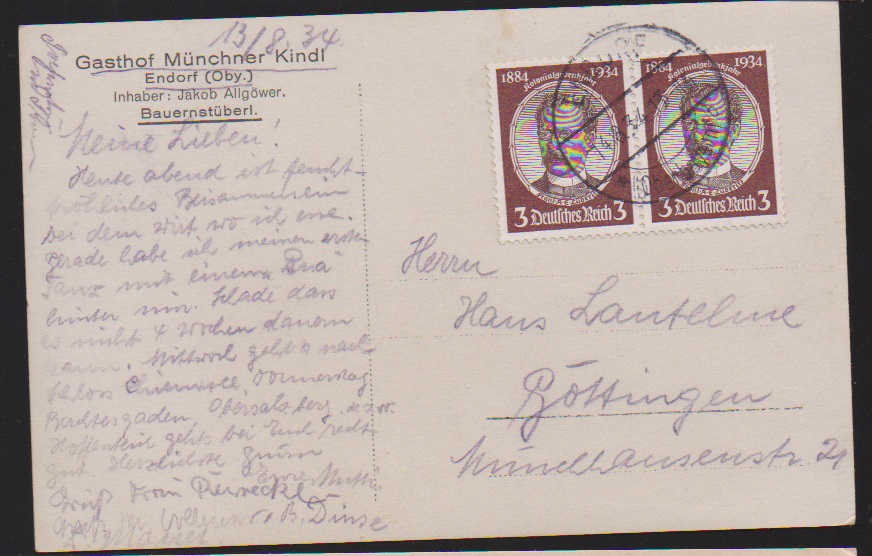 13/8.34.
Gasthof Münchner Kindl
Endorf (Oby.)
Inhaber: Jakob Allgöwer.
Bauernstüberl.
Meine Lieben!
Heute abend ist feucht-
fröhliches Beisammensein
bei dem Wirt wo ich esse.
Gerade habe ich meinen ersten
Tanz mit einem "Bua"
hinter mir. Schade dass
es nicht 4 Wochen dauern
kann. Mittwoch geht's nach
Schloss Chiemsee, Donnerstag
Berchtesgaden, Obersalzberg u.s.w.
Hoffentlich gehts bei Euch recht
gut. Herzlichste Grüsse
Eure Mutti.
Gruß
B. Dinse
1884 1934
Kolonialgedenkjahr
3 Deutsches Reich 3
1884 1934
Kolonialgedenkjahr
3 Deutsches Reich 3
Herrn
Hans Lantelme
Göttingen
Münchhausenstr. 21